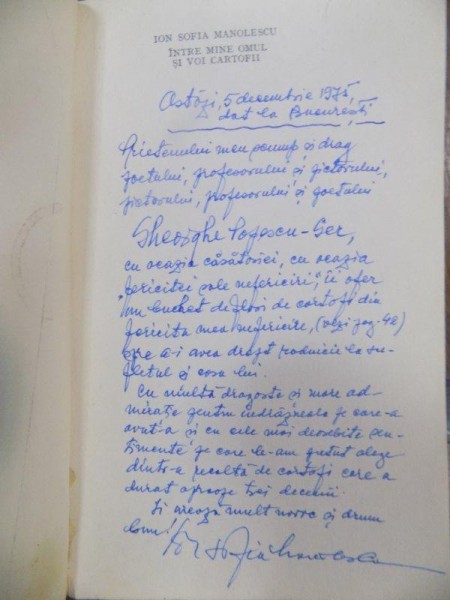 ION SOFIA MANOLESCU
ÎNTRE MINE OMUL
ȘI VOI CARTOFII
Astăzi, 5 decembrie 1975,
dat la București
Prietenului meu scump și drag
poetului, profesorului și pictorului,
pictorului, profesorului și poetului
Gheorghe Popescu-Ger,
cu ocazia căsătoriei, cu ocazia
"fericitei sale nefericiri", îi ofer
un buchet de flori de cartofi din
fericita mea nefericire, (vezi pag. 42)
spre a-i avea drept rodnicie la su-
fletul și casa lui.
Cu multă dragoste și mare ad-
mirație pentru îndrăzneala pe care-a
avut-o și cu cele mai deosebite sen-
timente pe care le-am putut alege
dintr-o recoltă de cartofi care a
durat aproape trei decenii.
Îi urează mult noroc și drum
bun!
Ion Sofia Manolescu